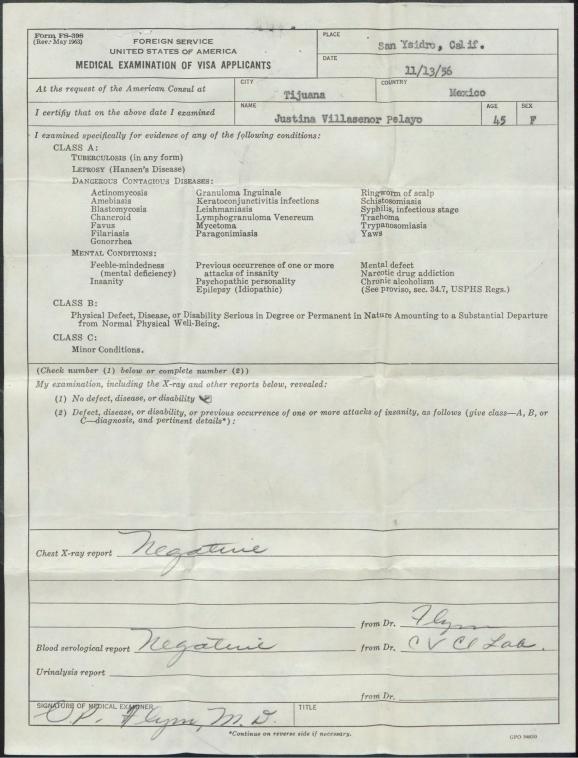 Form FS-398
(Rev. May 1963)
FOREIGN SERVICE
UNITED STATES OF AMERICA
MEDICAL EXAMINATION OF VISA APPLICANTS
PLACE
San Ysidro, Calif.
DATE
11/13/56
At the request of the American Consul at
CITY
Tijuana
COUNTRY
Mexico
I certify that on the above date I examined
NAME
Justina Villasenor Pelayo
AGE
45
SEX
F
I examined specifically for evidence of any of the following conditions:
CLASS A:
TUBERCULOSIS (in any form)
LEPROSY (Hansen's Disease)
DANGEROUS CONTAGIOUS DISEASES:
Actinomycosis
Amebiasis
Blastomycosis
Chancroid
Favus
Filariasis
Gonorrhea
Granuloma Inguinale
Keratoconjunctivitis infections
Leishmaniasis
Lymphogranuloma Venereum
Mycetoma
Paragonimiasis
Ringworm of scalp
Schistosomiasis
Syphilis, infectious stage
Trachoma
Trypanosomiasis
Yaws
MENTAL CONDITIONS:
Feeble-mindedness
(mental deficiency)
Insanity
Previous occurrence of one or more
attacks of insanity
Psychopathic personality
Epilepsy (Idiopathic)
Mental defect
Narcotic drug addiction
Chronic alcoholism
(See proviso, sec. 34.7, USPHS Regs.)
CLASS B:
Physical Defect, Disease, or Disability Serious in Degree or Permanent in Nature Amounting to a Substantial Departure
from Normal Physical Well-Being.
CLASS C:
Minor Conditions.
(Check number (1) below or complete number (2))
My examination, including the X-ray and other reports below, revealed:
(1) No defect, disease, or disability
(2) Defect, disease, or disability, or previous occurrence of one or more attacks of insanity, as follows (give class—A, B, or
C—diagnosis, and pertinent details*):
Chest X-ray report Negative
from Dr. Flynn
Blood serological report Negative from Dr. C V Cl Lab.
Urinalysis report
from Dr.
SIGNATURE OF MEDICAL EXAMINER
O.P. Flynn, M.D.
TITLE
*Continue on reverse side if necessary.